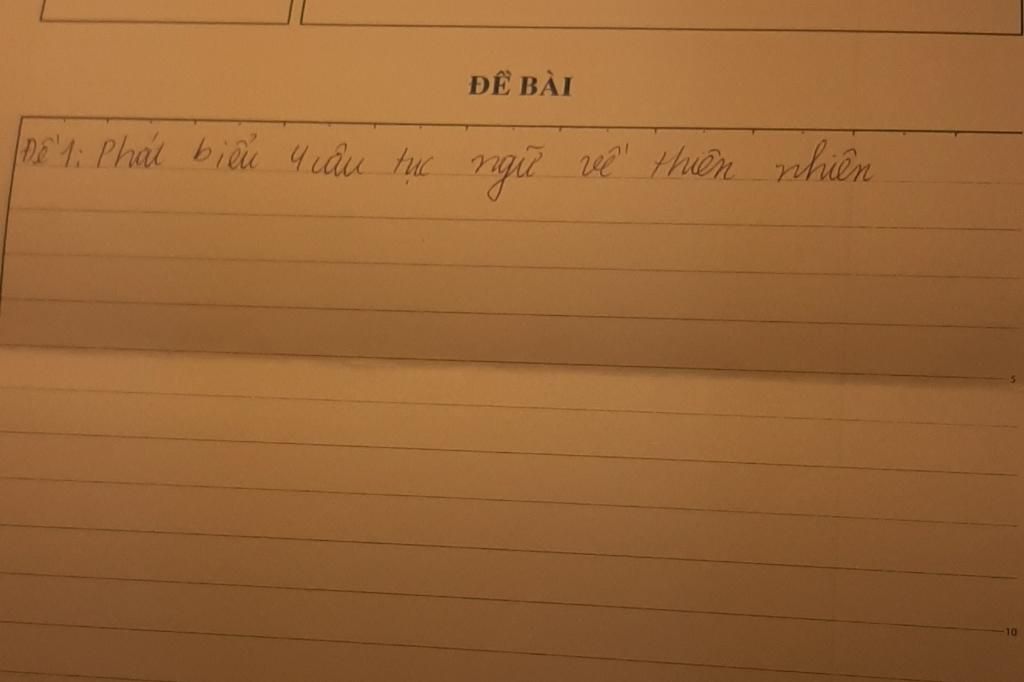 ĐỀ BÀI
Đề 1: Phát biểu 4 câu tục ngữ về thiên nhiên
5
10